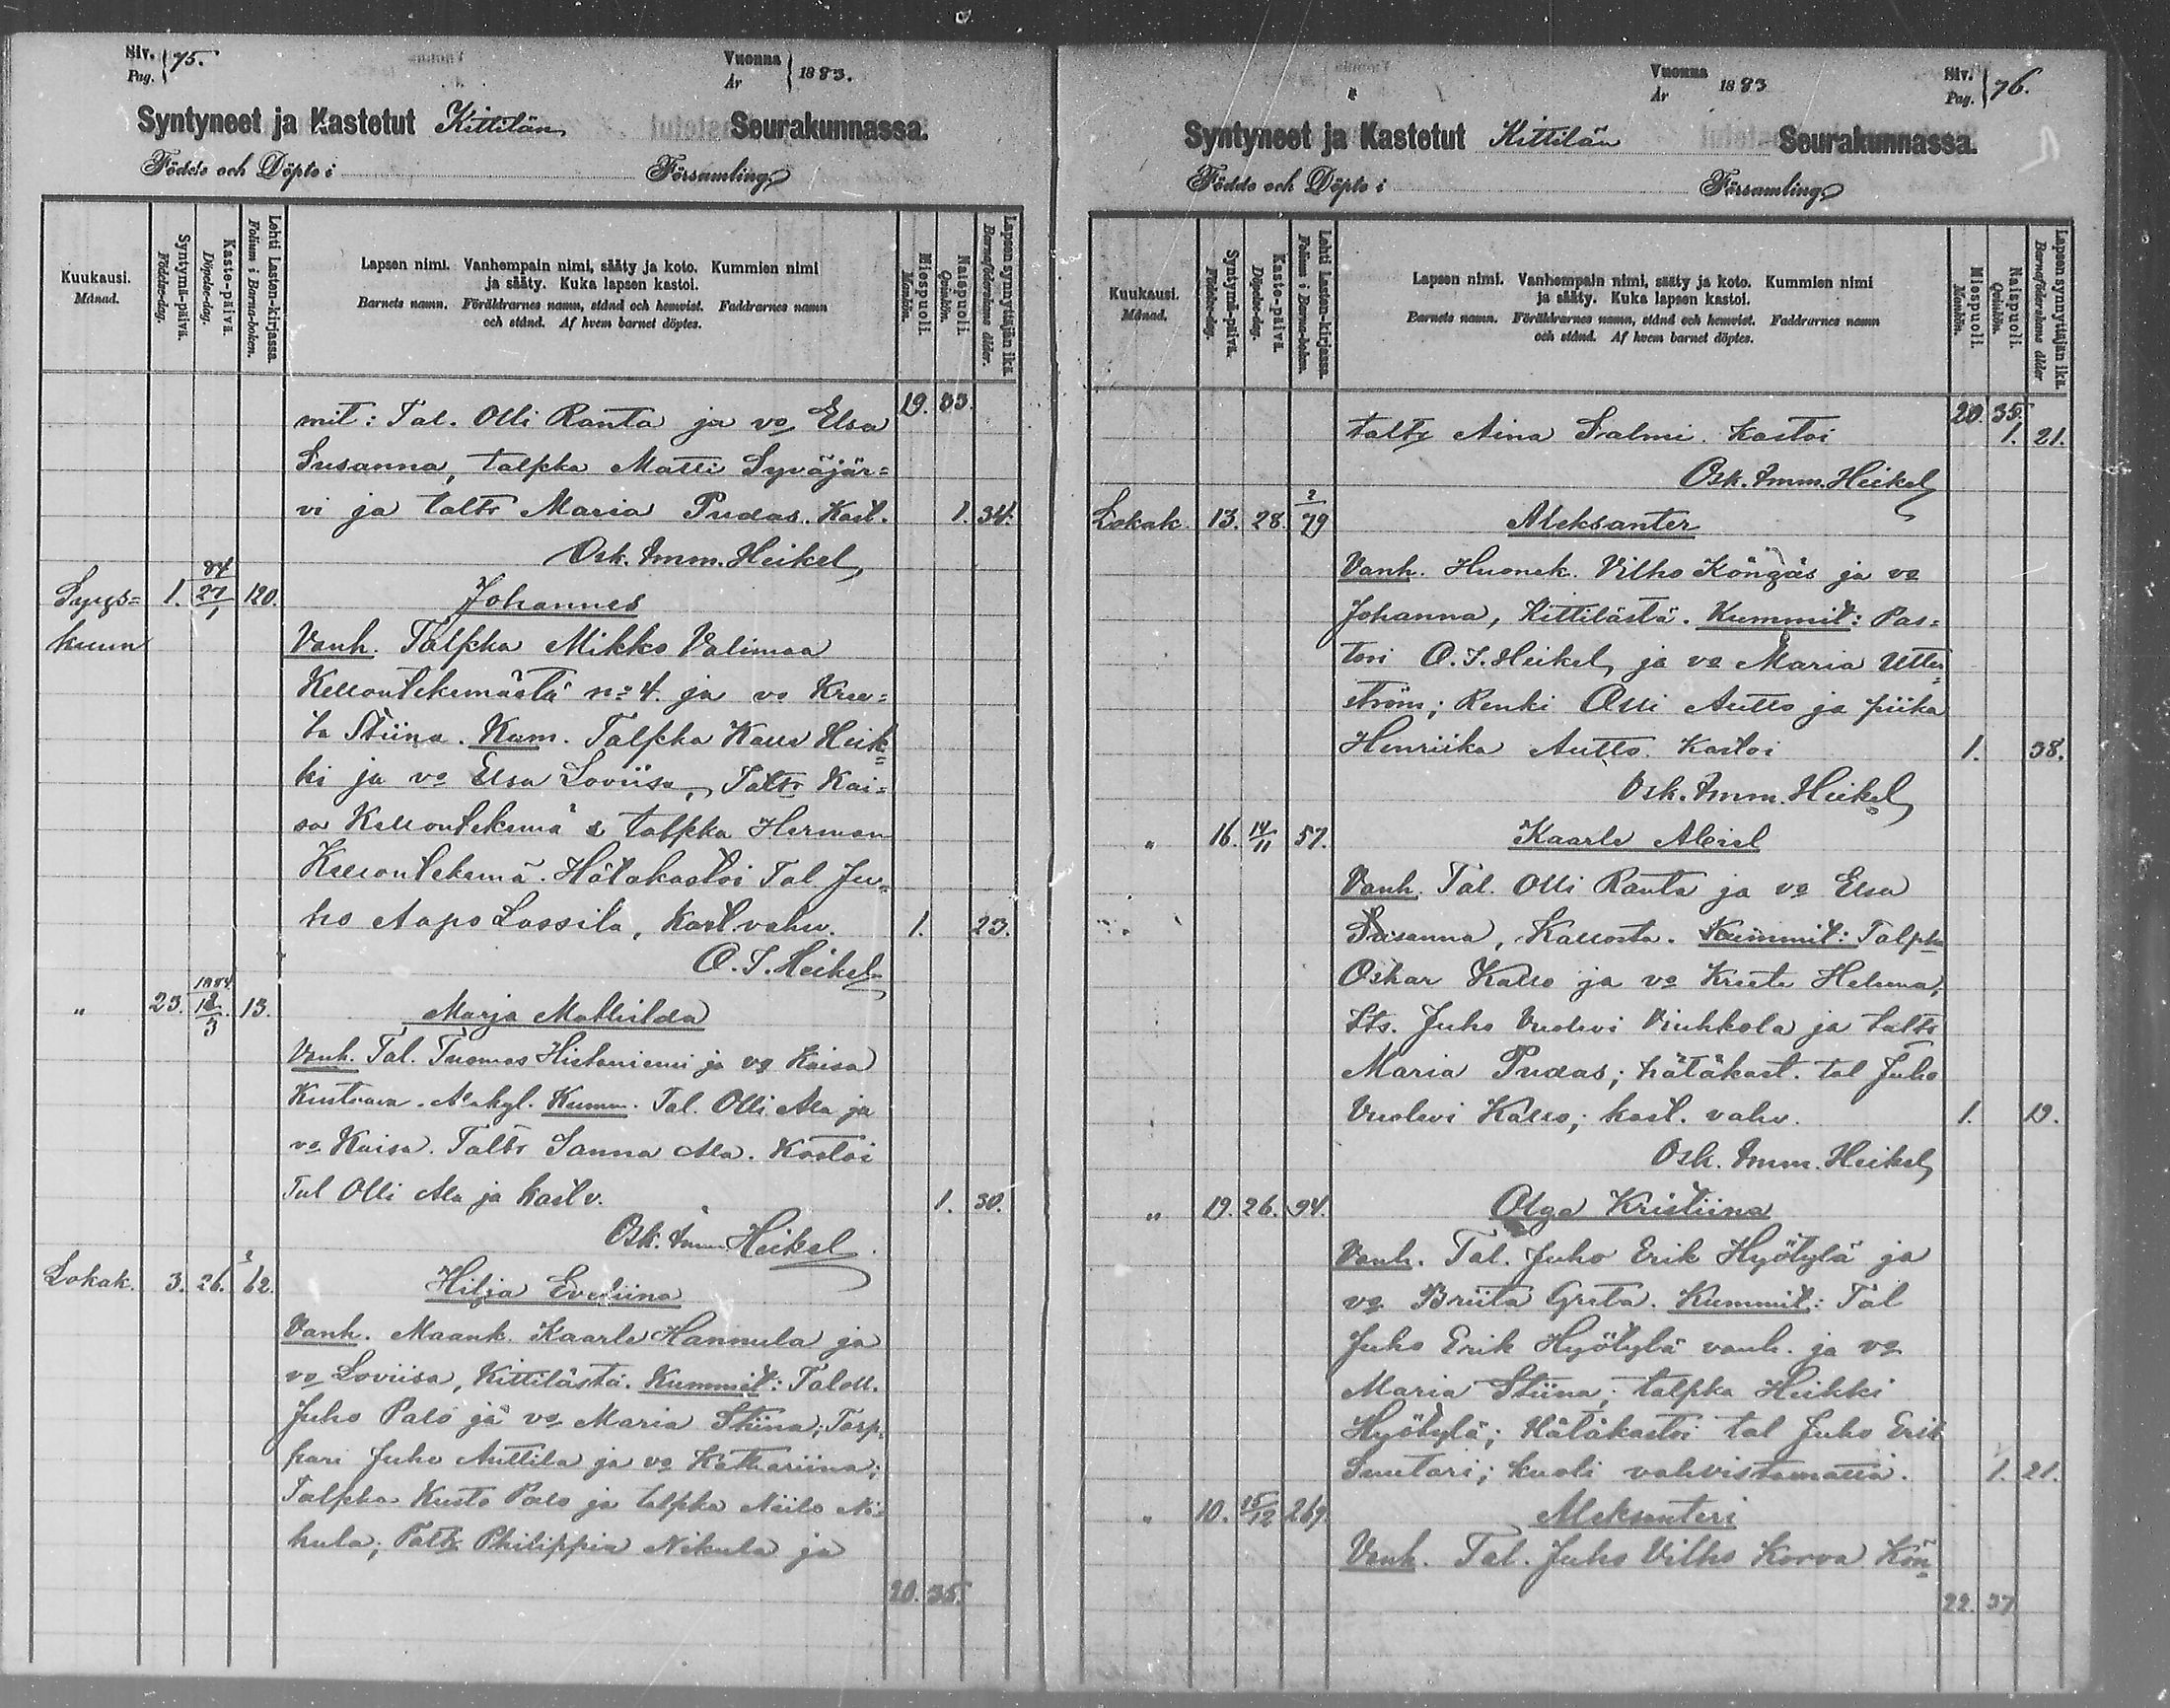 Siv. 75.
Pag.
Vuonna 1883.
År
Syntyneet ja Kastetut Kittilän Seurakunnassa.
Födde och Döpte i Församling
Kuukausi.
Månad.
Syntymä-päivä.
Födelse-dag.
Kaste-päivä.
Döpelse-dag.
Lehti Lasten-kirjassa.
Folium i Barna-boken.
Lapsen nimi. Vanhempain nimi, sääty ja koto. Kummien nimi
ja sääty. Kuka lapsen kastoi.
Barnets namn. Föräldrarnes namn, stånd och hemvist. Faddrarnes namn
och stånd. Af hvem barnet döptes.
Miespuoli.
Mankön.
Naispuoli.
Qvinkön.
Lapsen synnyttäjän ikä.
Barnaföderskans ålder.
19. 33.
mit: Tal. Olli Ranta ja vo Elsa
Susanna, talpka Matti Syväjär=
vi ja taltr Maria Pudas. Kast. 1. 34.
Osk. Imm. Heikel
Syys= 1. 84 27/1 120. Johannes
kuun Vanh. Talpka Mikko Valimaa
Kellontekemästä no 4. ja vo Kree=
ta Stiina. Kum. Talpka Kalle Heik=
ki ja vo Elsa Loviisa, Taltr Kai=
sa Kellontekemä & talpka Herman
Kellontekemä. Hätäkastoi Tal Ju=
ho Aapo Lassila, Kast. vahv. 1. 23.
O. I. Heikel
" 23. 1884 12/3. 13. Marja Mathilda
Vanh. Tal. Tuomas Hietaniemi ja vo Kaisa
Alakyl. Kumm. Tal. Olli Ala ja
vo Kaisa. Taltr Sanna Ala. Kastoi
Tal Olli Ala ja kast v. 1. 30.
Osk. Imm. Heikel
Lokak. 3. 26. 2 62. Hilja Eveliina
Vanh. Maank. Kaarle Hannula ja
vo Loviisa, Kittilästä. Kummit: Taloll.
Juho Palo ja vo Maria Stiina; Torp=
pari Juho Anttila ja vo Kathariina;
Talpka Kusto Palo ja talpka Niilo Ni=
kula; Taltr Philippia Nikula ja
20. 35.
Vuonna 1883
År
Siv. 76.
Pag.
Syntyneet ja Kastetut Kittilän Seurakunnassa.
Födde och Döpte i Församling
Kuukausi.
Månad.
Syntymä-päivä.
Födelse-dag.
Kaste-päivä.
Döpelse-dag.
Lehti Lasten-kirjassa.
Folium i Barna-boken.
Lapsen nimi. Vanhempain nimi, sääty ja koto. Kummien nimi
ja sääty. Kuka lapsen kastoi.
Barnets namn. Föräldrarnes namn, stånd och hemvist. Faddrarnes namn
och stånd. Af hvem barnet döptes.
Miespuoli.
Mankön.
Naispuoli.
Qvinkön.
Lapsen synnyttäjän ikä.
Barnaföderskans ålder
20. 35.
taltr Aina Salmi. Kastoi 1. 21.
Osk. Imm. Heikel
Lokak. 13. 28. 2/79 Aleksanter
Vanh. Huonek. Vilho Köngäs ja vo
Johanna, Kittilästä. Kummit: Pas=
tori O. I. Heikel, ja vo Maria Utter=
ström; Renki Olli Autto ja piika
Henriika Autto. Kastoi 1. 38.
Osk. Imm. Heikel
" 16. 14/11 57. Kaarle Abiel
Vanh. Tal. Olli Ranta ja vo Elsa
Susanna, Kallosta. Kummit: Talpka
Oskar Kallo ja vo Kreeta Helena,
Its. Juho Vuolevi Vinhkola ja taltr
Maria Pudas; hätäkast. tal Juho
Vuolevi Kallo; kast. vahv. 1. 19.
Osk. Imm. Heikel
" 19. 26. 94. Olga Kristiina
Vanh. Tal. Juho Erik Hyötylä ja
vo Briita Greta. Kummit: Tal
Juho Erik Hyötylä vanh. ja vo
Maria Stiina; talpka Heikki
Hyötylä; Hätäkastoi tal Juho Erik
Suutari; kuoli vahvistamatta. 1. 21.
" 10. 15/12 269. Aleksanteri
Vanh. Tal. Juho Vilho Korva Kön=
22. 37